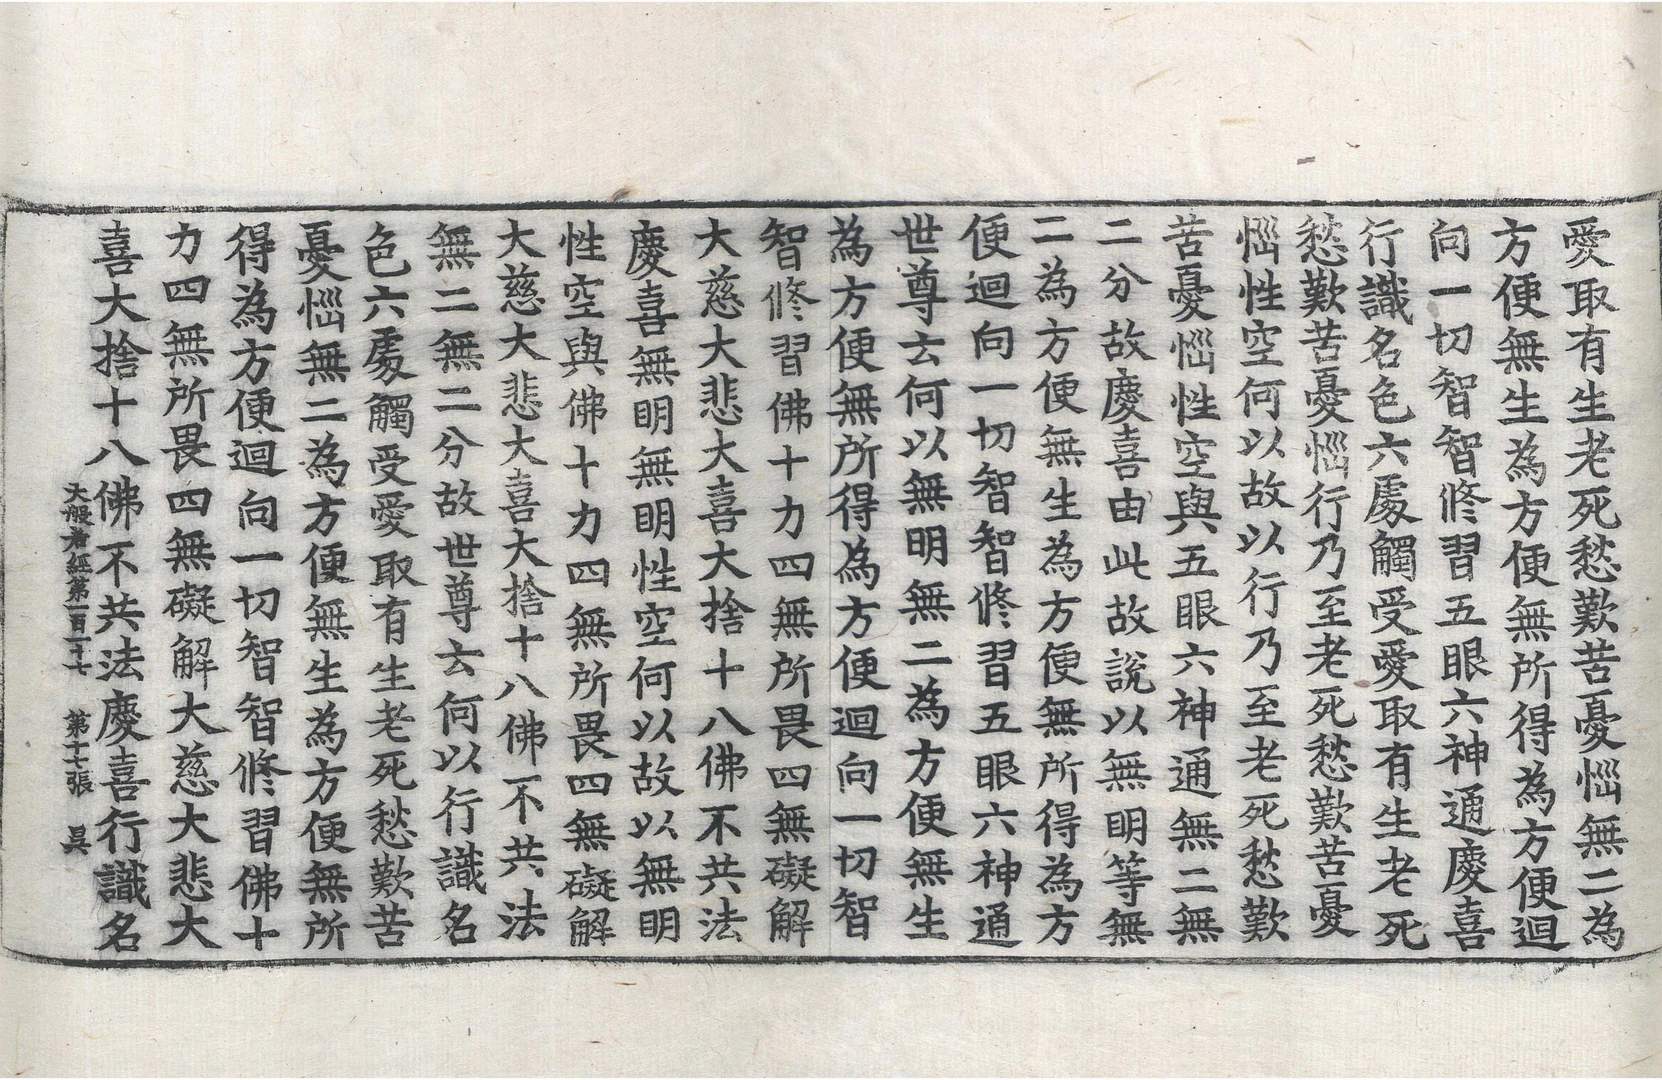 愛取有生老死愁歎苦憂惱無二為
方便無生為方便無所得為方便迴
向一切智智修習五眼六神通慶喜
行識名色六處觸受愛取有生老死
愁歎苦憂惱行乃至老死愁歎苦憂
惱性空何以故以行乃至老死愁歎
苦憂惱性空與五眼六神通無二無
二分故慶喜由此故說以無明等無
二為方便無生為方便無所得為方
便迴向一切智智修習五眼六神通
世尊云何以無明無二為方便無生
為方便無所得為方便迴向一切智
智修習佛十力四無所畏四無礙解
大慈大悲大喜大捨十八佛不共法
慶喜無明無明性空何以故以無明
性空與佛十力四無所畏四無礙解
大慈大悲大喜大捨十八佛不共法
無二無二分故世尊云何以行識名
色六處觸受愛取有生老死愁歎苦
憂惱無二為方便無生為方便無所
得為方便迴向一切智智修習佛十
力四無所畏四無礙解大慈大悲大
喜大捨十八佛不共法慶喜行識名
大般若經第一百一十七 第十七張 昃